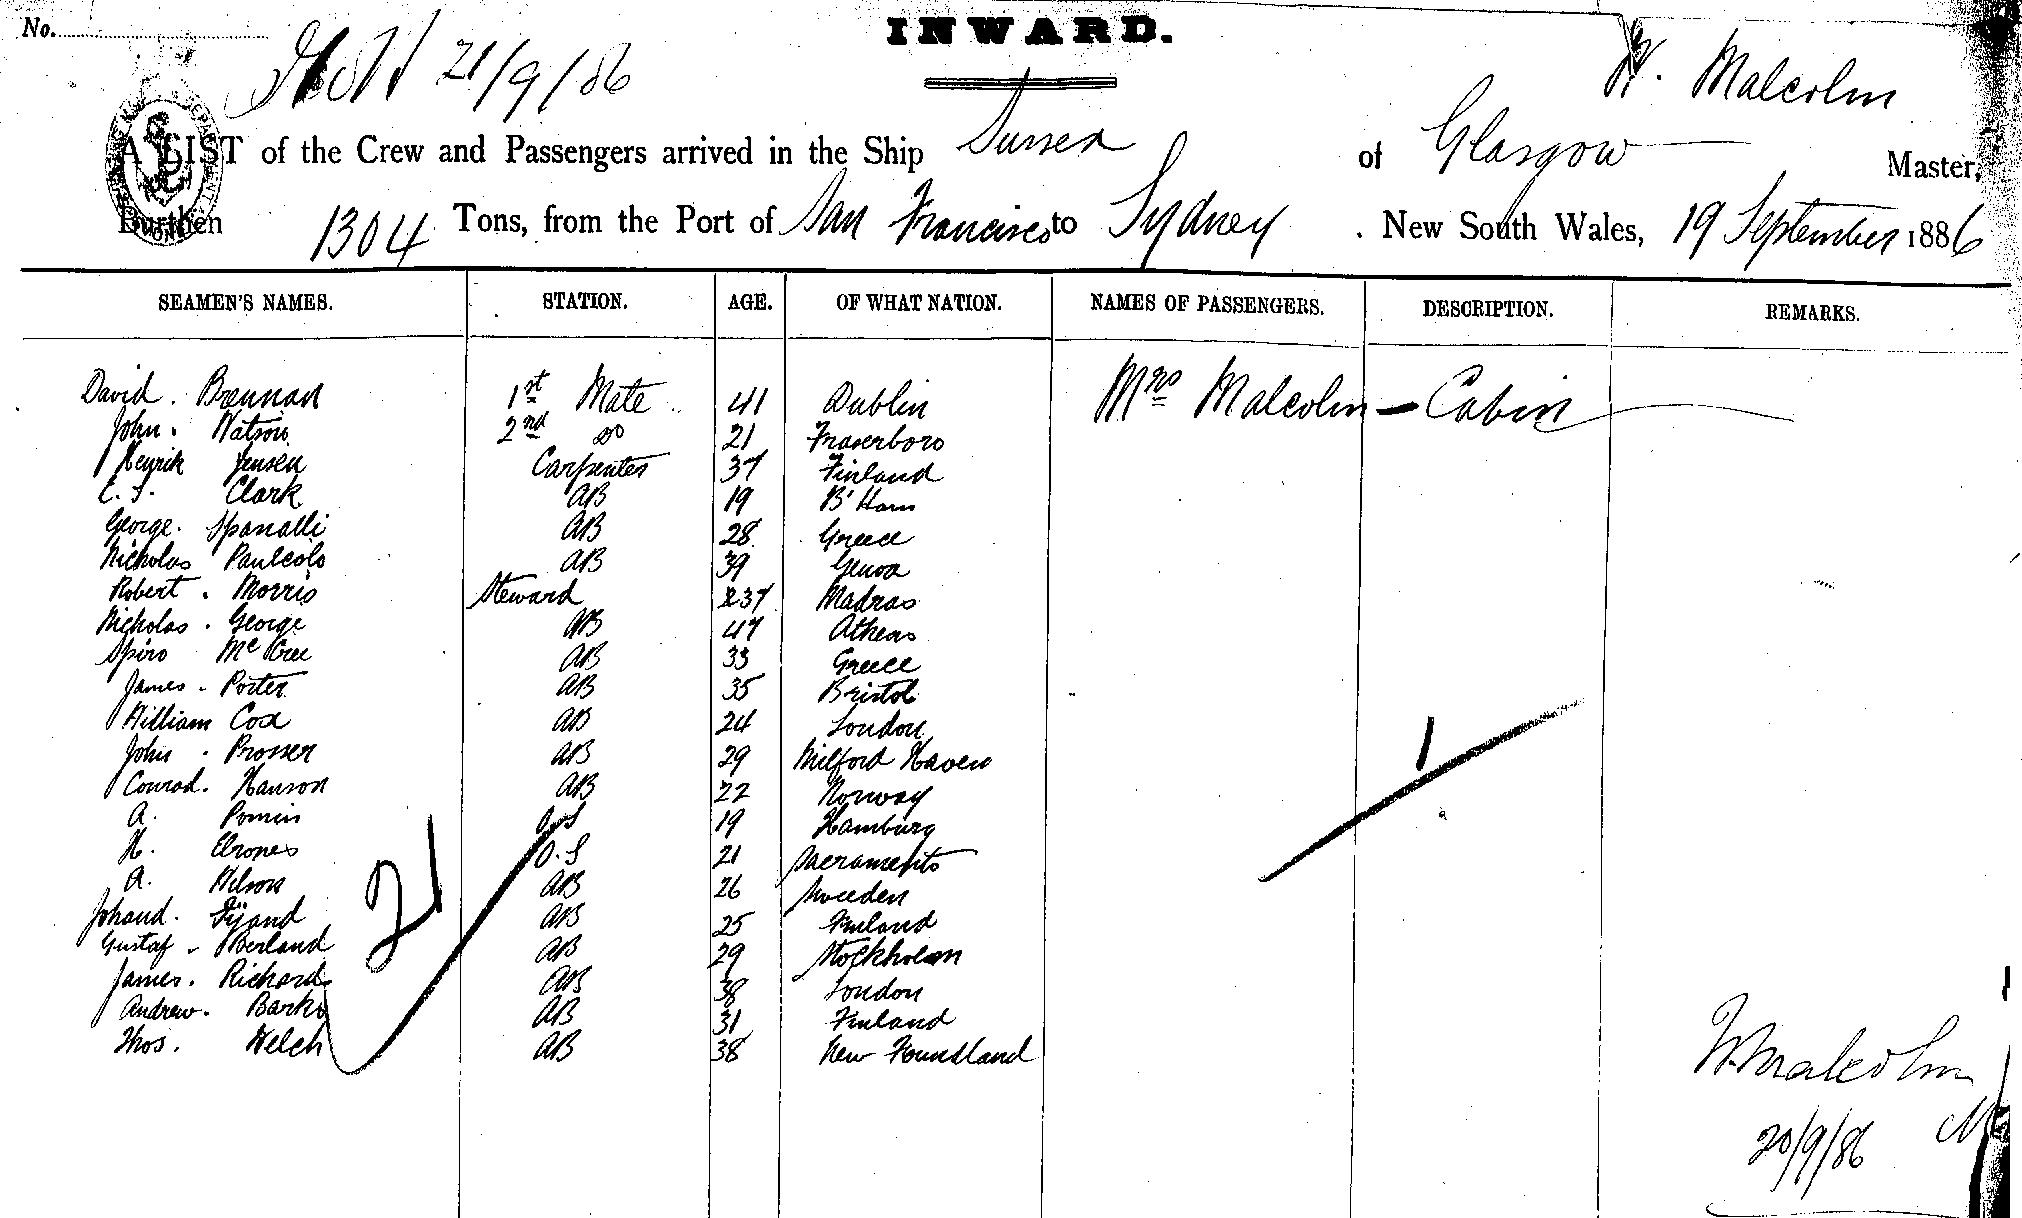 No.
INWARD.
21/9/86
W. Malcolm
A LIST of the Crew and Passengers arrived in the Ship Sussex of Glasgow Master,
Burthen 1304 Tons, from the Port of San Francisco to Sydney . New South Wales, 19 September 1886
SEAMEN'S NAMES. STATION. AGE. OF WHAT NATION. NAMES OF PASSENGERS. DESCRIPTION. REMARKS.
David . Brennan 1st Mate 41 Dublin Mrs Malcolm – Cabin
John . Watson 2nd do 21 Fraserboro
Henrik Jensen Carpenter 37 Finland
Clark AB 19 B'Ham
George . Spanalli AB 28 Greece
Nicholas Paulcolo AB 39 Genoa
Robert . Morris Steward 37 Madras
Nicholas . George AB 47 Athens
Spiro AB 33 Greece
James . Porter AB 35 Bristol
William Cox AB 24 London
John . Prosser AB 29 Milford Haven
Conrad . Hanson AB 22 Norway
A. O.S 19 Hamburg
H. O.S 21 Sacramento
A. Wilson AB 26 Sweeden
Johand . AB 25 Finland
Gustaf . Berland AB 29 Stockholm
James . Richards AB 38 London
Andrew . Barks AB 31 Finland
Thos . Welch AB 38 New Foundland
21
1
W. Malcolm
20/9/86